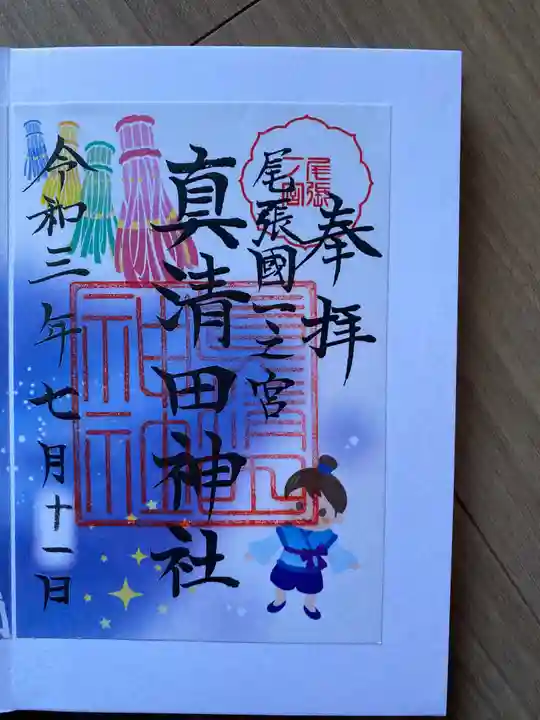 奉拝
尾張
一ノ宮
尾張國一之宮
真清田神社
令和三年七月十一日